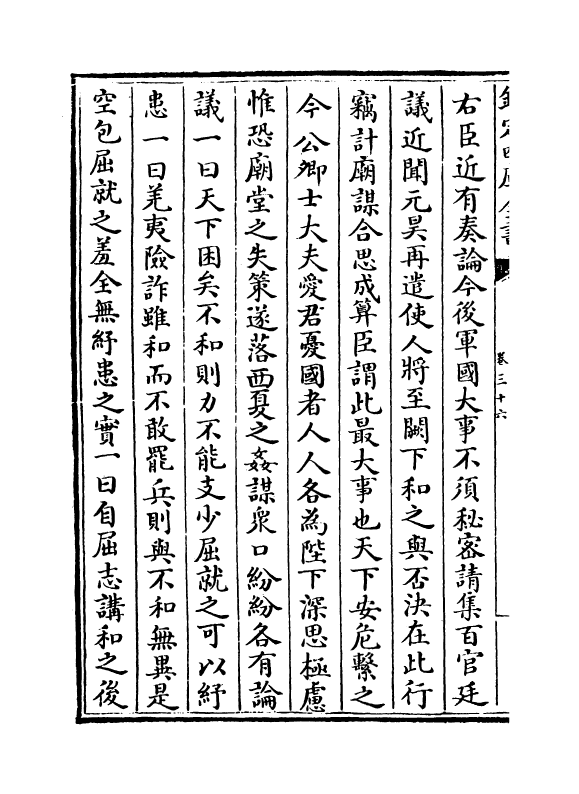 欽定四庫全書
卷三十六
右臣近有奏論今後軍國大事不須秘密請集百官廷
議近聞元昊再遣使人將至闕下和之與否決在此行
竊計廟謀合思成算臣謂此最大事也天下安危繫之
今公卿士大夫愛君憂國者人人各為陛下深思極慮
惟恐廟堂之失策遂落西夏之姦謀衆口紛紛各有論
議一曰天下困矣不和則力不能支少屈就之可以紓
患一曰羌夷險詐雖和而不敢罷兵則與不和無異是
空包屈就之羞全無紓患之實一曰自屈志講和之後